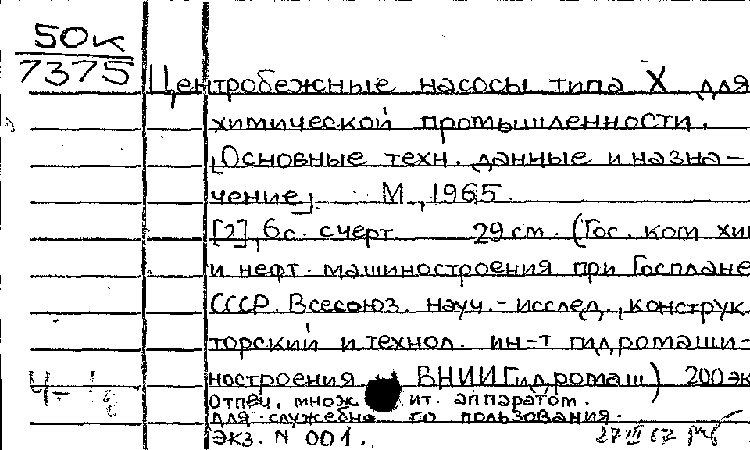 50к
7375
Центробежные насосы типа Х для
химической промышленности.
[Основные техн. данные и назна-
чение]. М., 1965.
[2], 6с. с черт. 29 см. (Гос. ком хи
и нефт. машиностроения при Госплане
СССР. Всесоюз. науч.-исслед., конструк
торский и технол. ин-т гидромаши-
ностроения ВНИИГидромаш) 200 эк
Отпеч. множ. ит. аппаратом.
Для служебно го пользования.
Экз. N 001.